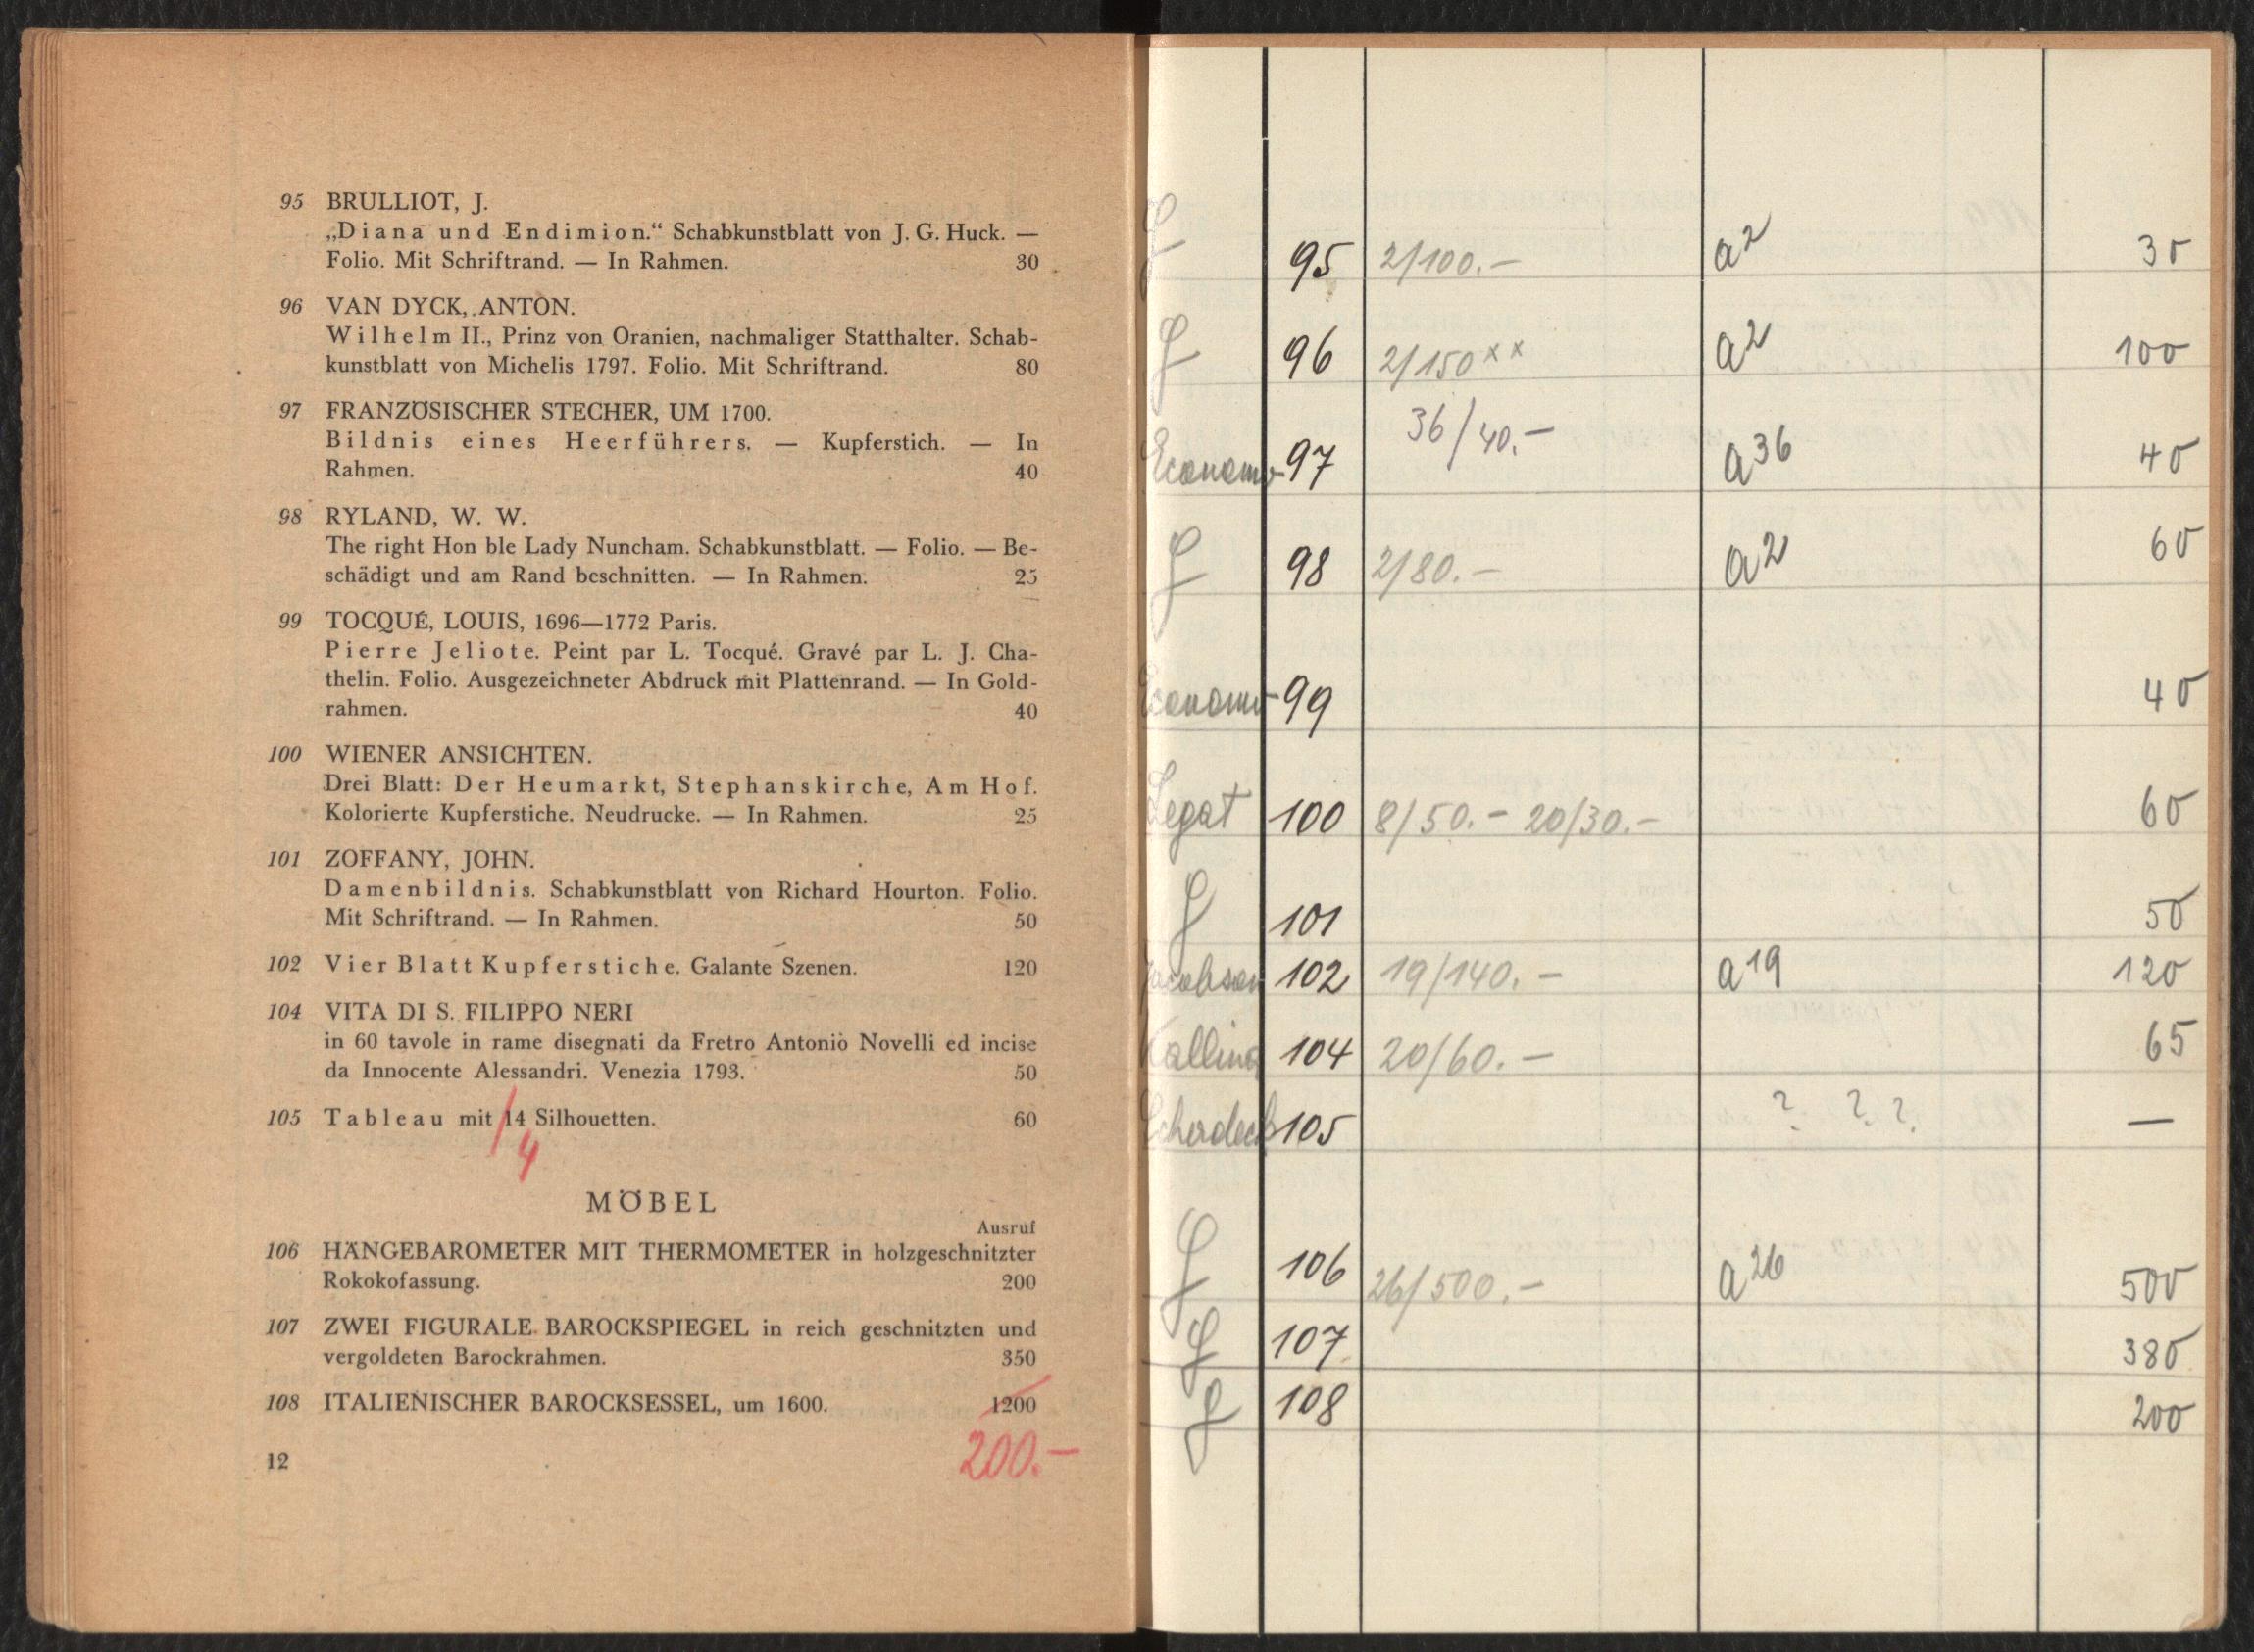 95 BRULLIOT, J.
„Diana und Endimion.“ Schabkunstblatt von J. G. Huck. —
Folio. Mit Schriftrand. — In Rahmen. 30
96 VAN DYCK, ANTON.
Wilhelm II., Prinz von Oranien, nachmaliger Statthalter. Schab-
kunstblatt von Michelis 1797. Folio. Mit Schriftrand. 80
97 FRANZÖSISCHER STECHER, UM 1700.
Bildnis eines Heerführers. — Kupferstich. — In
Rahmen. 40
98 RYLAND, W. W.
The right Hon ble Lady Nuncham. Schabkunstblatt. — Folio. — Be-
schädigt und am Rand beschnitten. — In Rahmen. 25
99 TOCQUÉ, LOUIS, 1696—1772 Paris.
Pierre Jeliote. Peint par L. Tocqué. Gravé par L. J. Cha-
thelin. Folio. Ausgezeichneter Abdruck mit Plattenrand. — In Gold-
rahmen. 40
100 WIENER ANSICHTEN.
Drei Blatt: Der Heumarkt, Stephanskirche, Am Hof.
Kolorierte Kupferstiche. Neudrucke. — In Rahmen. 25
101 ZOFFANY, JOHN.
Damenbildnis. Schabkunstblatt von Richard Hourton. Folio.
Mit Schriftrand. — In Rahmen. 50
102 Vier Blatt Kupferstiche. Galante Szenen. 120
104 VITA DI S. FILIPPO NERI
in 60 tavole in rame disegnati da Fretro Antonio Novelli ed incise
da Innocente Alessandri. Venezia 1793. 50
105 Tableau mit 14 Silhouetten. 60
4
MÖBEL
Ausruf
106 HÄNGEBAROMETER MIT THERMOMETER in holzgeschnitzter
Rokokofassung. 200
107 ZWEI FIGURALE BAROCKSPIEGEL in reich geschnitzten und
vergoldeten Barockrahmen. 350
108 ITALIENISCHER BAROCKSESSEL, um 1600. 1200
200.—
12
95 2/100.— a2 30
96 2/150 xx a2 100
Economo 97 36/40.— a36 40
98 2/80.— a2 60
Economo 99 40
Legat 100 8/50.— 20/30.— 60
101 50
Jacobson 102 19/140.— a19 120
104 20/60.— 65
105 ? ? ? —
106 26/500.— a26 500
107 380
108 200